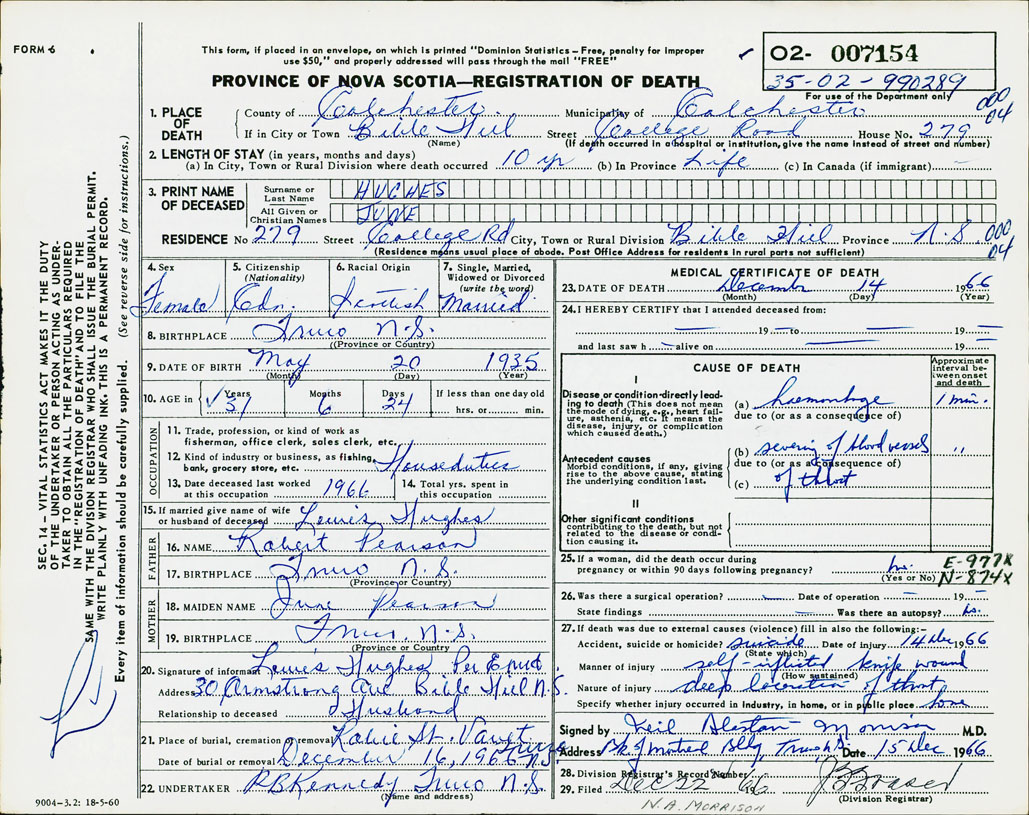 FORM 6
This form, if placed in an envelope, on which is printed "Dominion Statistics – Free, penalty for improper
use $50," and properly addressed will pass through the mail "FREE"
PROVINCE OF NOVA SCOTIA—REGISTRATION OF DEATH
02- 007154
35-02-990289
For use of the Department only
000
04
1. PLACE OF DEATH
County of Colchester Municipality of Colchester
If in City or Town Bible Hill Street College Road House No. 279
(Name) (If death occurred in a hospital or institution, give the name instead of street and number)
2. LENGTH OF STAY (in years, months and days)
(a) In City, Town or Rural Division where death occurred 10 yr (b) In Province Life (c) In Canada (if immigrant) —
3. PRINT NAME OF DECEASED
Surname or Last Name HUGHES
All Given or Christian Names JUNE
RESIDENCE No 279 Street College Rd City, Town or Rural Division Bible Hill Province N.S. 000 04
(Residence means usual place of abode. Post Office Address for residents in rural parts not sufficient)
4. Sex Female
5. Citizenship (Nationality) Cdn.
6. Racial Origin Scottish
7. Single, Married, Widowed or Divorced (write the word) Married
8. BIRTHPLACE Truro N.S.
(Province or Country)
9. DATE OF BIRTH May 20 1935
(Month) (Day) (Year)
10. AGE in Years 31 Months 6 Days 24 If less than one day old hrs. or min.
OCCUPATION
11. Trade, profession, or kind of work as fisherman, office clerk, sales clerk, etc.
12. Kind of industry or business, as fishing, bank, grocery store, etc. Houseduties
13. Date deceased last worked at this occupation 1966
14. Total yrs. spent in this occupation
15. If married give name of wife or husband of deceased Lewis Hughes
FATHER
16. NAME Robert Pearson
17. BIRTHPLACE Truro N.S.
(Province or Country)
MOTHER
18. MAIDEN NAME June Pearson
19. BIRTHPLACE Truro, N.S.
(Province or Country)
20. Signature of informant Lewis Hughes Per
Address 30 Armstrong Ave Bible Hill N.S.
Relationship to deceased Husband
21. Place of burial, cremation or removal
Date of burial or removal December 16, 1966 Truro N.S.
22. UNDERTAKER R B Kennedy Truro N.S.
(Name and address)
MEDICAL CERTIFICATE OF DEATH
23. DATE OF DEATH December 14 1966
(Month) (Day) (Year)
24. I HEREBY CERTIFY that I attended deceased from:
— 19 — to — 19 —
and last saw h — alive on — 19 —
CAUSE OF DEATH
Approximate interval between onset and death
I
Disease or condition directly leading to death (This does not mean the mode of dying, e.g., heart failure, asthenia, etc. It means the disease, injury, or complication which caused death.)
(a) haemorrhage 1 min.
due to (or as a consequence of)
Antecedent causes
Morbid conditions, if any, giving rise to the above cause, stating the underlying condition last.
(b) severing of blood vessels "
due to (or as a consequence of)
(c) of throat
II
Other significant conditions contributing to the death, but not related to the disease or condition causing it.
25. If a woman, did the death occur during pregnancy or within 90 days following pregnancy? no.
(Yes or No)
E-977X
N-874X
26. Was there a surgical operation? — Date of operation — 19 —
State findings — Was there an autopsy? no.
27. If death was due to external causes (violence) fill in also the following:–
Accident, suicide or homicide? suicide Date of injury 14 Dec 1966
(State which)
Manner of injury self-inflicted knife wound
(How sustained)
Nature of injury deep laceration of throat
Specify whether injury occurred in Industry, in home, or in public place home
Signed by Neil Alastair Morrison M.D.
Address Bk of Montreal Bldg, Truro NS Date 15 Dec 1966
28. Division Registrar's Record Number
29. Filed Dec 22 66
(Division Registrar)
N.A. MORRISON
9004-3.2: 18-5-60
SEC. 14 – VITAL STATISTICS ACT MAKES IT THE DUTY
OF THE UNDERTAKER OR PERSON ACTING AS UNDERTAKER
TO OBTAIN ALL THE PARTICULARS REQUIRED
IN THE "REGISTRATION OF DEATH" AND TO FILE THE
SAME WITH THE DIVISION REGISTRAR WHO SHALL ISSUE THE BURIAL PERMIT.
WRITE PLAINLY WITH UNFADING INK. THIS IS A PERMANENT RECORD.
Every item of information should be carefully supplied. (See reverse side for instructions.)